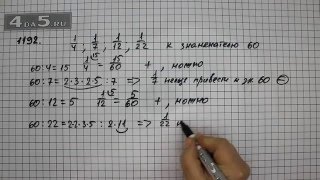 4DA5.RU
1192. 1/4, 1/7, 1/12, 1/22 к знаменателю 60
60:4=15 1/4 = 15/60 +, можно
60:7= 2·3·2·5:7 => 1/7 нельзя привести к зн 60 ⊖
60:12=5 1/12 = 5/60 +, можно
60:22=2·2·3·5 : 2·11 => 1/22 н